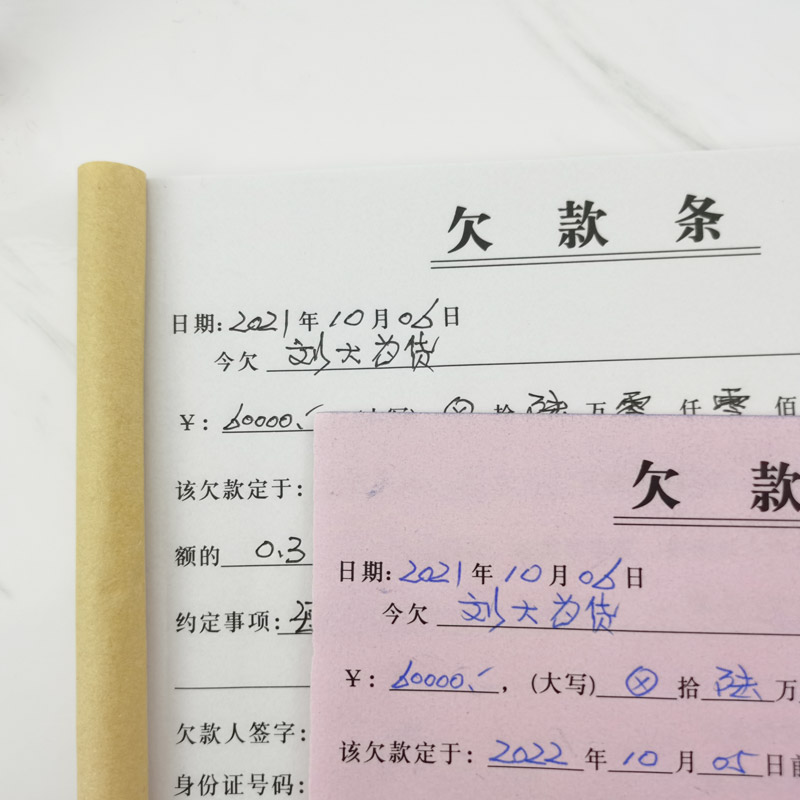 欠款条
日期:2021年10月06日
今欠 刘大为货
¥: 60000.- ⊗拾陆万零仟零佰
该欠款定于:
额的 0.3
约定事项:
欠款人签字:
身份证号码:
欠款
日期:2021年10月06日
今欠 刘大为货
¥: 60000.-, (大写)⊗拾陆万
该欠款定于: 2022年10月05日前